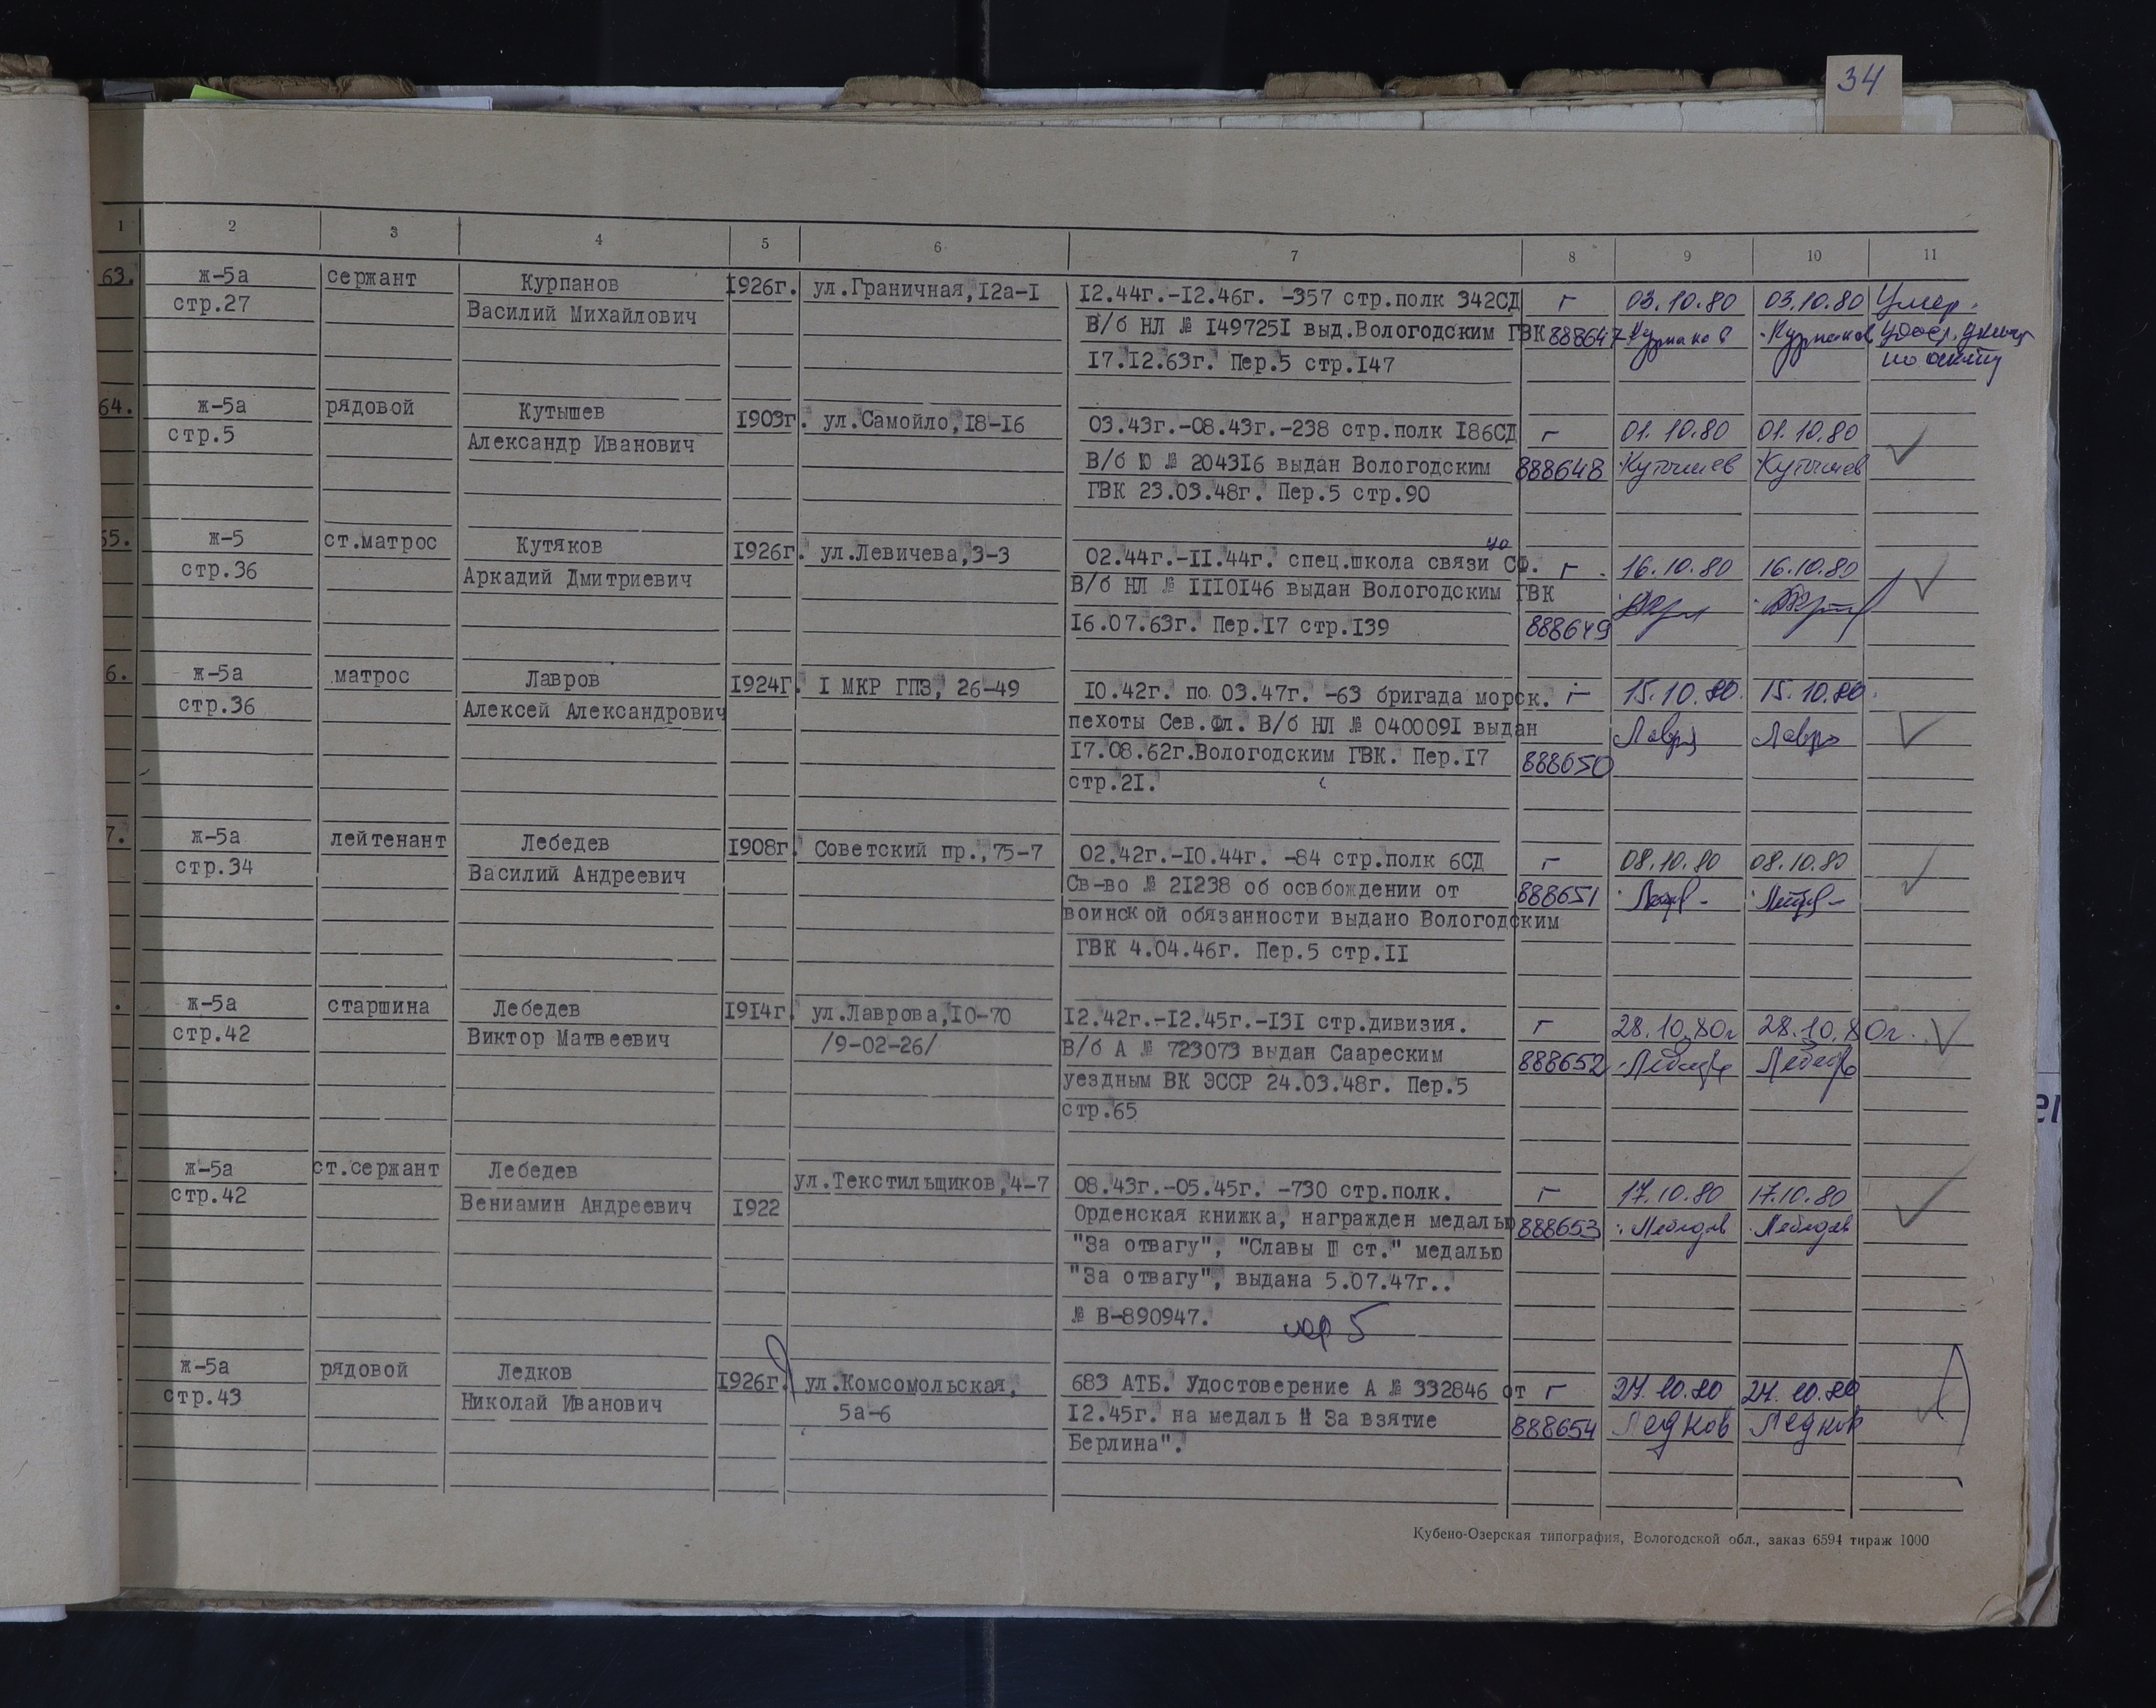 34
1 2 3 4 5 6 7 8 9 10 11
63. ж-5а сержант Курпанов 1926г. ул.Граничная,12а-1 12.44г.-12.46г. -357 стр.полк 342СД г 03.10.80 03.10.80 Умер.
стр.27 Василий Михайлович В/б НЛ № 1497251 выд.Вологодским ГВК 888647
17.12.63г. Пер.5 стр.147
64. ж-5а рядовой Кутышев 1903г. ул.Самойло,18-16 03.43г.-08.43г.-238 стр.полк 186СД г 01.10.80 01.10.80
стр.5 Александр Иванович В/б Ю № 204316 выдан Вологодским 888648 Кутышев Кутышев
ГВК 23.03.48г. Пер.5 стр.90
55. ж-5 ст.матрос Кутяков 1926г. ул.Левичева,3-3 02.44г.-11.44г. спец.школа связи СФ. г 16.10.80 16.10.80
стр.36 Аркадий Дмитриевич В/б НЛ № 1110146 выдан Вологодским ГВК
16.07.63г. Пер.17 стр.139 888649
6. ж-5а матрос Лавров 1924г. 1 МКР ГПЗ, 26-49 10.42г. по 03.47г. -63 бригада морск. г 15.10.80. 15.10.80.
стр.36 Алексей Александрович пехоты Сев.Фл. В/б НЛ № 0400091 выдан
17.08.62г.Вологодским ГВК. Пер.17 888650
стр.21.
7. ж-5а лейтенант Лебедев 1908г. Советский пр.,75-7 02.42г.-10.44г. -84 стр.полк 6СД г 08.10.80 08.10.80
стр.34 Василий Андреевич Св-во № 21238 об освбождении от 888651
воинской обязанности выдано Вологодским
ГВК 4.04.46г. Пер.5 стр.11
. ж-5а старшина Лебедев 1914г. ул.Лаврова,10-70 12.42г.-12.45г.-131 стр.дивизия. г 28.10.80г 28.10.80г.
стр.42 Виктор Матвеевич /9-02-26/ В/б А № 723073 выдан Саареским 888652
уездным ВК ЭССР 24.03.48г. Пер.5
стр.65
. ж-5а ст.сержант Лебедев ул.Текстильщиков,4-7 08.43г.-05.45г. -730 стр.полк. г 17.10.80 17.10.80
стр.42 Вениамин Андреевич 1922 Орденская книжка, награжден медалью 888653 Лебедев Лебедев
"За отвагу", "Славы III ст." медалью
"За отвагу", выдана 5.07.47г..
№ В-890947. пер 5
ж-5а рядовой Ледков 1926г. ул.Комсомольская, 683 АТБ. Удостоверение А № 332846 от г 27.10.80 27.10.80
стр.43 Николай Иванович 5а-6 12.45г. на медаль " За взятие 888654 Ледков Ледков
Берлина".
Кубено-Озерская типография, Вологодской обл., заказ 6594 тираж 1000